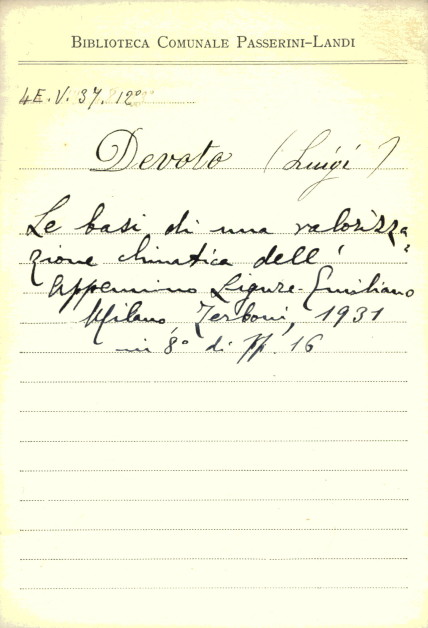 BIBLIOTECA COMUNALE PASSERINI-LANDI
4E. V. 37. 12º
Devoto (Luigi)
Le basi di una valorizza=
zione climatica dell'
Appennino Ligure-Emiliano
Milano, Zerboni, 1931
in 8º di pp. 16